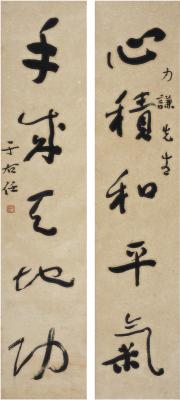 心積和平氣
力謙先生
手成天地功
于右任